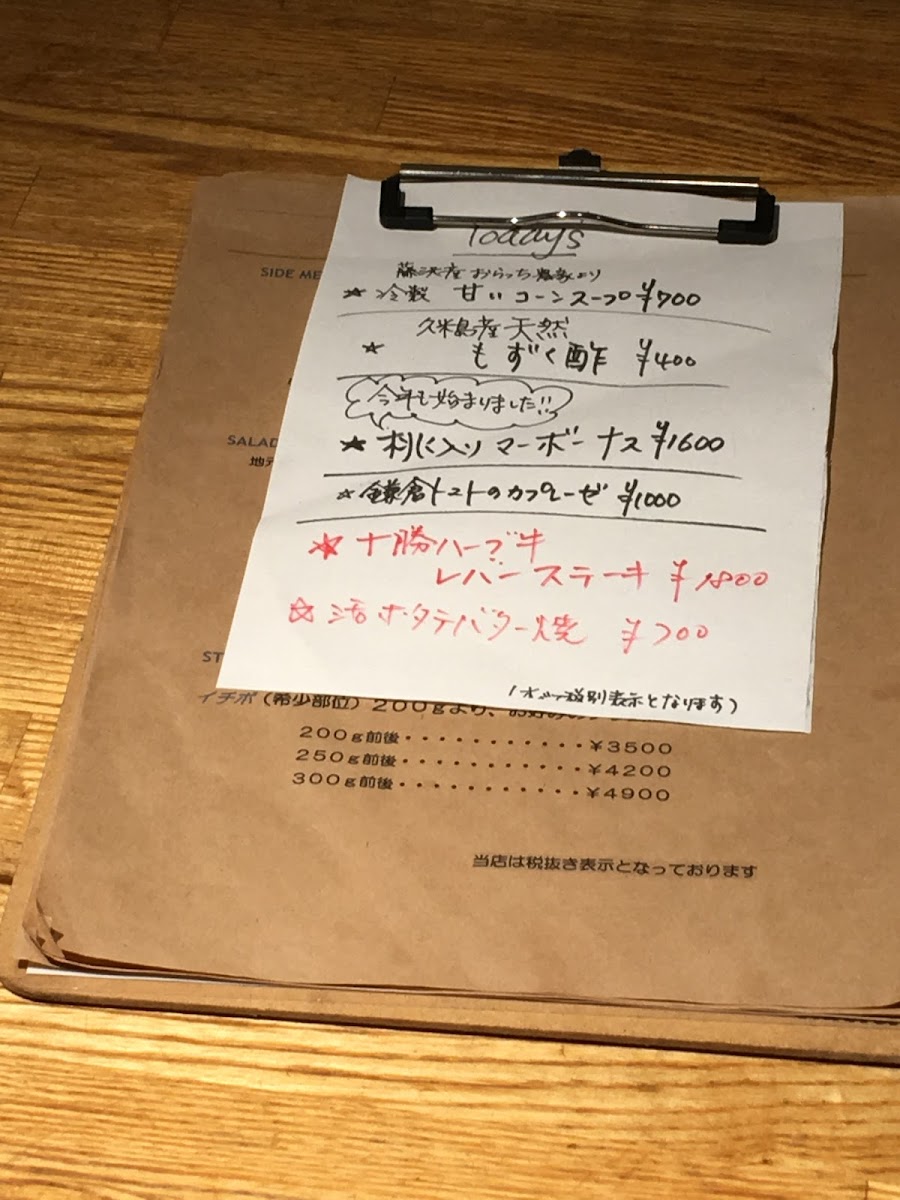 Todays
SIDE ME
藤沢産 おらっち農家より
☆ 冷製 甘いコーンスープ ¥700
久米島産天然
☆ もずく酢 ¥400
今年も始まりました!!
SALAD
地元
★ 村に入り マーボーナス ¥1600
☆ 鎌倉トマトのカプレーゼ ¥1000
★ 十勝ハーブ牛
レバーステーキ ¥1800
☆ 活ホタテバター焼 ¥700
ST
税別表示となります)
イチボ(希少部位)200gより、お好みの
200g前後・・・・・・・・・・・¥3500
250g前後・・・・・・・・・・・¥4200
300g前後・・・・・・・・・・・¥4900
当店は税抜き表示となっております